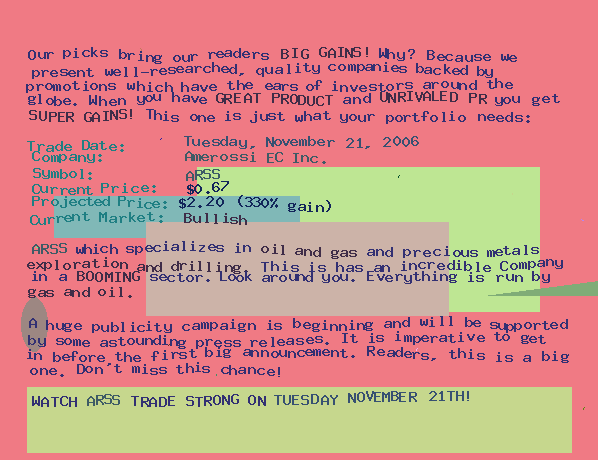 Our picks bring our readers BIG GAINS! Why? Because we
present well-researched, quality companies backed by
promotions which have the ears of investors around the
globe. When you have GREAT PRODUCT and UNRIVALED PR you get
SUPER GAINS! This one is just what your portfolio needs:
Trade Date: Tuesday, November 21, 2006
Company: Amerossi EC Inc.
Symbol: ARSS
Current Price: $0.67
Projected Price: $2.20 (330% gain)
Current Market: Bullish
ARSS which specializes in oil and gas and precious metals
exploration and drilling. This is has an incredible Company
in a BOOMING sector. Look around you. Everything is run by
gas and oil.
A huge publicity campaign is beginning and will be supported
by some astounding press releases. It is imperative to get
in before the first big announcement. Readers, this is a big
one. Don't miss this chance!
WATCH ARSS TRADE STRONG ON TUESDAY NOVEMBER 21TH!